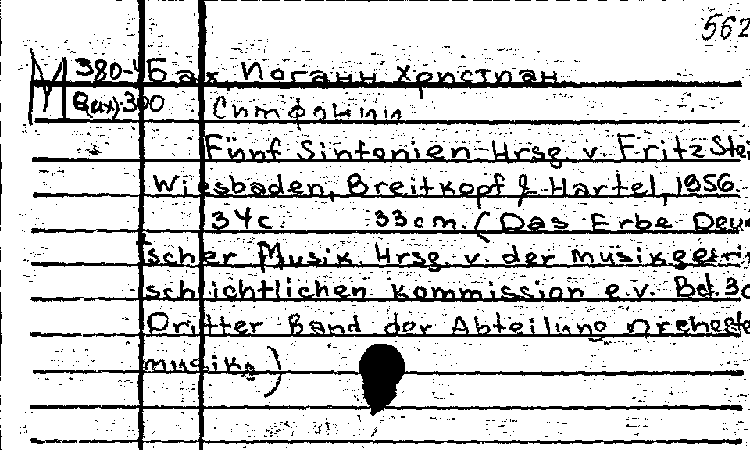 562
М 380-4 Бах, Иоганн Христиан
Симфонии
Fünf Sinfonien Hrsg v. Fritz Stei
Wiesbaden, Breitkopf & Hartel, 1956.
34с. 33cm. (Das Erbe Deu
scher Musik. Hrsg. v. der musikges
schlichtlichen kommission e.v. Bd. 30
Dritter Band der Abteilung Orcheste
musik)